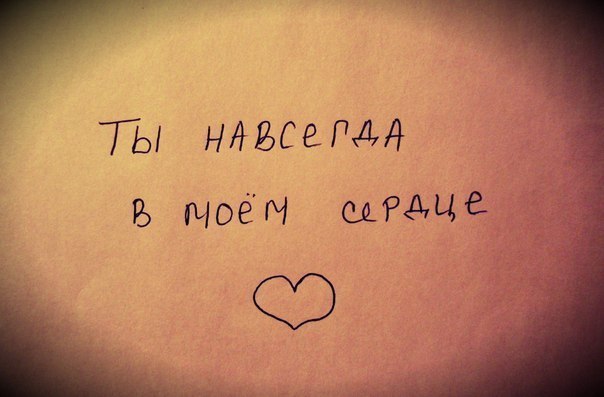 Ты навсегда
в моём сердце